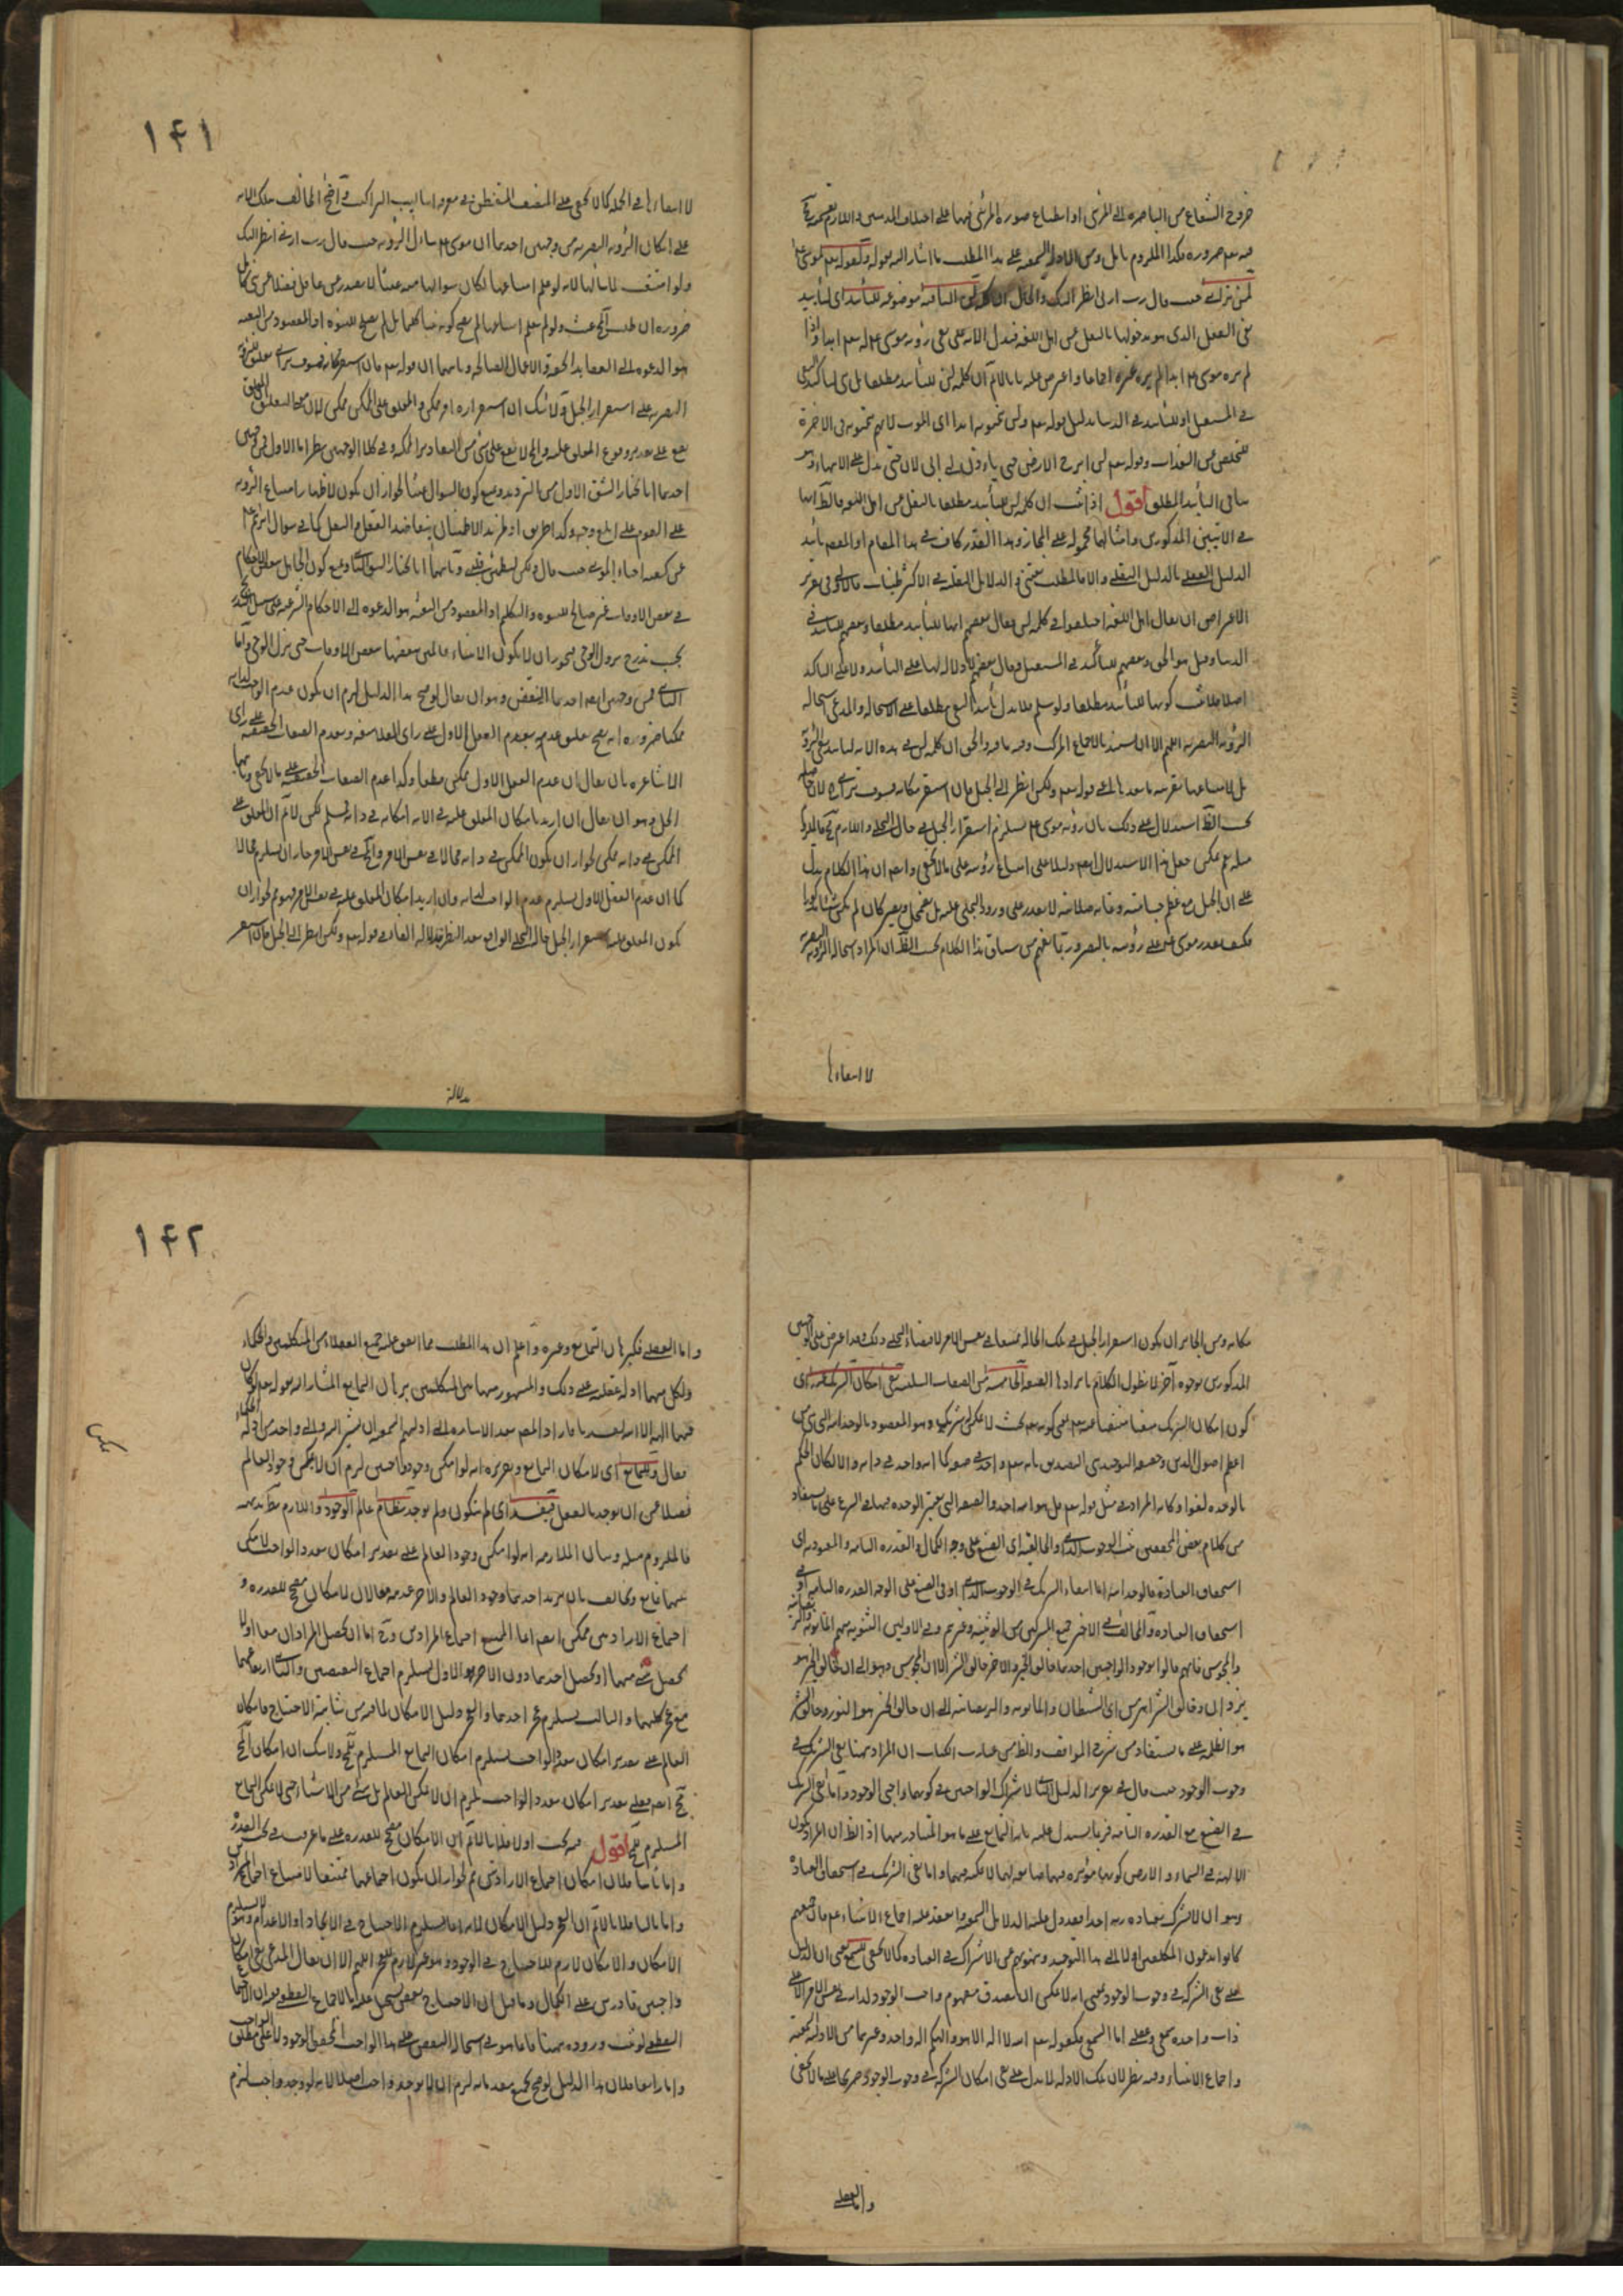 خروج الشعاع من الباصرة الى المرئى او انطباع صورة المرئى فيها على اختلاف المذهبين واللازم
فيه تعم ضرورة فكذا الملزوم تأمل ومن الادلة السمعية على هذا المطلب ما اشار اليه بقوله ولقوله تعم لموسى
لن ترانى حيث قال رب ارنى انظر اليك والحال ان كلمة لن النافية موضوعة للتأبيد اى لتأبيد
نفى الفعل الذى هو مدخولها بالنقل عن اهل اللغة فيدل الآية على نفى رؤية موسى ع م له تعم ابدا واذا
لم يره موسى ع م ابدا لم يره غيره اجماعا واعترض عليه بانا لا نم ان كلمة لن للتأبيد مطلقا بل هى لتأكيد النفى
فى المستقبل او للتأبيد فى الدنيا بدليل قوله تعم ولن يتمنوه ابدا اى الموت لانهم يتمنونه فى الاخرة
للتخلص عن العذاب وقوله تعم لن ابرح الارض حتى يأذن لى ابى لان حتى يدل على الانتهاء وهو
ينافى التأبيد المطلق اقول اذا ثبت ان كلمة لن للتأبيد مطلقا بالنقل من اهل اللغة فالظ انها
فى الآيتين المذكورتين وامثالهما محمولة على المجاز وهذا القدر كاف فى هذا المقام اذ المقصود تأييد
الدليل العقلى بالدليل النقلى والا فالمطلب يقينى والدلايل النقلية فى الاكثر ظنيات فالاولى فى تقرير
الاعتراض ان يقال اهل اللغة اختلفوا فى كلمة لن فقال بعضهم انها للتأبيد مطلقا وبعضهم للتأبيد فى
الدنيا وقيل هو الحق وبعضهم للتأكيد فى المستقبل وقال بعضهم لا دلالة لها على التأبيد ولا على التأكيد
اصلا فلا يثبت كونها للتأبيد مطلقا ولو سلم فلا يدل تأبيد النفى مطلقا على الاستحالة والمدعى استحالة
الرؤية البصرية اللهم الا ان يتمسك بالاجماع المركب وفيه ما فيه والحق ان كلمة لن فى هذه الآية لتأبيد نفى الرؤية
بل لامتناعها بقرينة ما بعدها اعنى قوله تعم ولكن انظر الى الجبل فان استقر مكانه فسوف ترانى لان
بحسب الظ استدلال على ذلك بان رؤية موسى ع م يستلزم استقرار الجبل فى حال التجلى واللازم مح فالملزوم
مثله نعم يمكن جعل هذا الاستدلال ايضا دليلا على امتناع رؤيته على ما لا يخفى واعلم ان هذا الكلام يدل
على ان الجبل مع عظم جسامته وغاية صلابته لا يقدر على ورود التجلى عليه بل يضمحل ويصير كأن لم يكن شيئا مذكورا
فكيف يقدر موسى ع م على رؤيته بالبصر ورتبة يفهم من سياق هذا الكلام بحسب الظ ان المراد استحالة الرؤية البصرية
لا امتناعها
١٤١
لا امتناعها فى الجملة كما لا يخفى على المنصف المتفطن فى معرفة اساليب التراكيب واحتج المخالف بتلك الآية
على امكان الرؤية البصرية من وجهين احدهما ان موسى ع م سأل الرؤية حيث قال رب ارنى انظر اليك
ولو امتنعت لما سألها لانه لو علم امتناعها لكان سؤالها منه عبثا لا يصدر من عاقل فضلا عن نبى
ضرورة ان طلب المح عبث ولو لم يعلم امتناعها لم يصح كونه نبيا كليما بل لم يصلح للنبوة اذ المقصود من البعثة
هو الدعوة الى العقايد الحقة والاعمال الصالحة وثانيهما ان قوله تعم فان استقر مكانه فسوف ترانى تعليق للرؤية
البصرية على استقرار الجبل ولا شك ان استقراره امر ممكن والمعلق على الممكن ممكن لان معنى التعليق ان المعلق
يقع على تقدير وقوع المعلق عليه والمح لا يقع على شئ من التقادير الممكنة وفى كلا الوجهين نظر اما الاول فمن وجهين
احدهما انا نختار الشق الاول من الترديد ونمنع كون السؤال عبثا لجواز ان يكون لاظهار امتناع الرؤية
على القوم على ابلغ وجه وآكد طريق او لمزيد الاطمينان بتعاضد العقل والنقل كما فى سؤال ابراهيم ع م
عن كيفية احياء الموتى حيث قال ولكن ليطمئن قلبى وثانيهما انا نختار الشق الثانى ونمنع كون الجاهل ببعض الاحكام
فى بعض الاوقات غير صالح للنبوة والتكليم اذ المقصود من البعثة هو الدعوة الى الاحكام الشرعية على سبيل التدريج
بحسب تدرج نزول الوحى فيجوز ان لا يكون الانبياء عالمين ببعضها بعض الاوقات حتى ينزل الوحى واما
الثانى فمن وجهين ايضا احدهما النقض وهو ان يقال لو صح هذا الدليل لزم ان يكون عدم الواجب لذاته
ممكنا ضرورة انه يصح تعليق عدمه بعدم العقل الاول على رأى الفلاسفة وبعدم الصفات الحقيقية على رأى
الاشاعرة بان يقال ان عدم العقل الاول ممكن مطلقا وكذا عدم الصفات الحقيقية على ما لا يخفى وثانيهما
الحل وهو ان يقال ان اريد بامكان المعلق عليه فى الآية امكانه فى ذاته فمسلم لكن لا نم ان المعلق على
الممكن فى ذاته ممكن لجواز ان يكون الممكن فى ذاته محالا فى نفس الامر والمح فى نفس الامر جاز ان يستلزم محالا
كما ان عدم العقل الاول يستلزم عدم الواجب لذاته وان اريد امكان المعلق عليه فى نفس الامر فهو مم لجواز ان
يكون المعلق عليه استقرار الجبل حالة التجلى الواقع بعد النظر بدلالة الفاء فى قوله تعم ولكن انظر الى الجبل فان استقر
بدلالة
مكانه ومن الجايز ان يكون استقرار الجبل فى تلك الحالة ممتنعا فى نفس الامر لاقتضاء التجلى ذلك وقد اعترض على الوجهين
المذكورين بوجوه آخر لا نطول الكلام بايرادها الصفة الخامسة من الصفات السلبية نفى امكان الشريك عنه اى
كون امكان الشريك منفيا منتفيا عنه تعم يعنى كونه تعم بحيث لا يمكن له شريك وهو المقصود بالوحدانية التى هى من
اعظم اصول الدين وحقيقة التوحيد هى التصديق بانه تعم واحد فى صور كماله واحد فى ذاته والا لكان الحكم
بالوحدة لغوا وكأنه المراد فى مثل قوله تعم قل هو الله احد والصفة التى يعتبر الوحدة فيها فى الشرع على ما يستفاد
من كلام بعض المحققين ثلث الوجوب الذاتى والخالقية اى الصنع على وجه الكمال والقدرة التامة والمعبودية اى
استحقاق العبادة فالوحدانية اما انتفاء الشريك فى الوجوب الذاتى او فى الصنع على الوجه القدرة التامة او فى
استحقاق العبادة والمخالف فى الاخير جميع المشركين من الوثنية وغيرهم وفى الاوليين الثنوية منهم المانوية
والمجوس فانهم قالوا بوجود الواجبين احدهما خالق الخير والاخر خالق الشر الا ان المجوس ذهبوا الى ان خالق الخير هو
يزدان وخالق الشر اهرمن اى الشيطان والمانوية والديصانية الى ان خالق الخير هو النور وخالق الشر
هو الظلمة على ما يستفاد من شرح المواقف والظ من عبارة الكتاب ان المراد ههنا نفى الشريك فى
وجوب الوجود حيث قال فى تقرير الدليل الثانى لاشتراك الواجبين فى كونهما واجبى الوجود واما نفى الشريك
فى الصنع مع القدرة التامة فربما يستدل عليه بآية التمانع على ما هو المتبادر منها اذ الظ ان المراد بكون
الآلهة فى السماء والارض كونها مؤثرة فيهما صانعة لهما لا ممكنة فيهما واما نفى الشريك فى استحقاق العبادة
وهو ان لا يشرك بعبادة ربه احدا فقد دل عليه الدلايل السمعية وانعقد عليه اجماع الانبياء ع م فان جميعهم
كانوا يدعون المكلفين اولا الى هذا التوحيد وينهونهم عن الاشراك فى العبادة كما لا يخفى للسمع يعنى ان الدليل
على نفى الشركة فى وجوب الوجود بمعنى انه لا يمكن ان يصدق مفهوم واجب الوجود لذاته فى نفس الامر الا على
ذات واحدة سمعى وعقلى اما السمعى فكقوله تعم الله لا اله الا هو والهكم اله واحد وغيرهما من الادلة السمعية
واجماع الانبياء وفيه نظر لان تلك الادلة لا تدل على نفى امكان الشركة فى وجوب الوجود صريحا على ما لا يخفى
واما العقلى
١٤٢
واما العقلى فكبرهان التمانع وغيره واعلم ان هذا المطلب مما اتفق عليه جميع العقلاء من المتكلمين والحكماء
ولكل منهما ادلة عقلية على ذلك والمشهور منها بين المتكلمين برهان التمانع المشار اليه بقوله تعم لو كان
فيهما آلهة الا الله لفسدتا فاراد المصنف بعد الاشارة الى ادلتهم السمعية ان يشير الى واحد من ادلة
فقال وللتمانع اى لامكان التمانع وتقريره انه لو امكن وجود واجبين لزم ان لا يمكن وجود العالم
فضلا عن ان يوجد بالفعل فيفسد اى لم يتكون ولم يوجد نظام عالم الوجود واللازم بط بديهة
فالملزوم مثله وبيان الملازمة انه لو امكن وجود العالم على تقدير امكان تعدد الواجب لامكن
بينهما تمانع وتخالف بان يريد احدهما وجود العالم والاخر عدمه معا لان الامكان مصحح للقدرة و
اجتماع الارادتين ممكن ايضا انما الممتنع اجتماع المرادين وح اما ان يحصل المرادان معا اولا
يحصل شئ منهما او يحصل احدهما دون الاخر والاول يستلزم اجتماع النقيضين والثانى ارتفاعهما
مع عجز كليهما والثالث يستلزم عجز احدهما والعجز دليل الامكان لما فيه من شائبة الاحتياج فامكان
العالم على تقدير امكان تعدد الواجب يستلزم امكان التمانع المستلزم للمح ولا شك ان امكان المح
مح ايضا فعلى تقدير امكان تعدد الواجب يلزم ان لا يمكن العالم بل شئ من الاشياء حتى لا يمكن التمانع
المستلزم للمح اقول فيه بحث اما اولا فلانا لا نم ان الامكان مصحح للقدرة على ما عرفت فى بحث القدرة
واما ثانيا فلان امكان اجتماع الارادتين مم لجواز ان يكون اجتماعهما ممتنعا لامتناع اجتماع المرادين
واما ثالثا فلانا لا نم ان العجز دليل الامكان لانه انما يستلزم الاحتياج فى الايجاد او الاعدام وهو لا يستلزم
الامكان والامكان لازم للاحتياج فى الوجود وهو غير لازم للعجز اللهم الا ان يقال المدعى نفى امكان
واجبين قادرين على الكمال وما قيل ان الاحتياج نقص يستحيل عليه تعم بالاجماع القطعى
القطعى لو ثبت وروده ههنا فانما هو فى استحالة النقص على هذا الواجب المحقق الوجود لا على مطلق الواجب
واما رابعا فلان هذا الدليل لو صح بجميع مقدماته لزم ان لا يوجد واجب اصلا لانه لو وجد واجب لزم